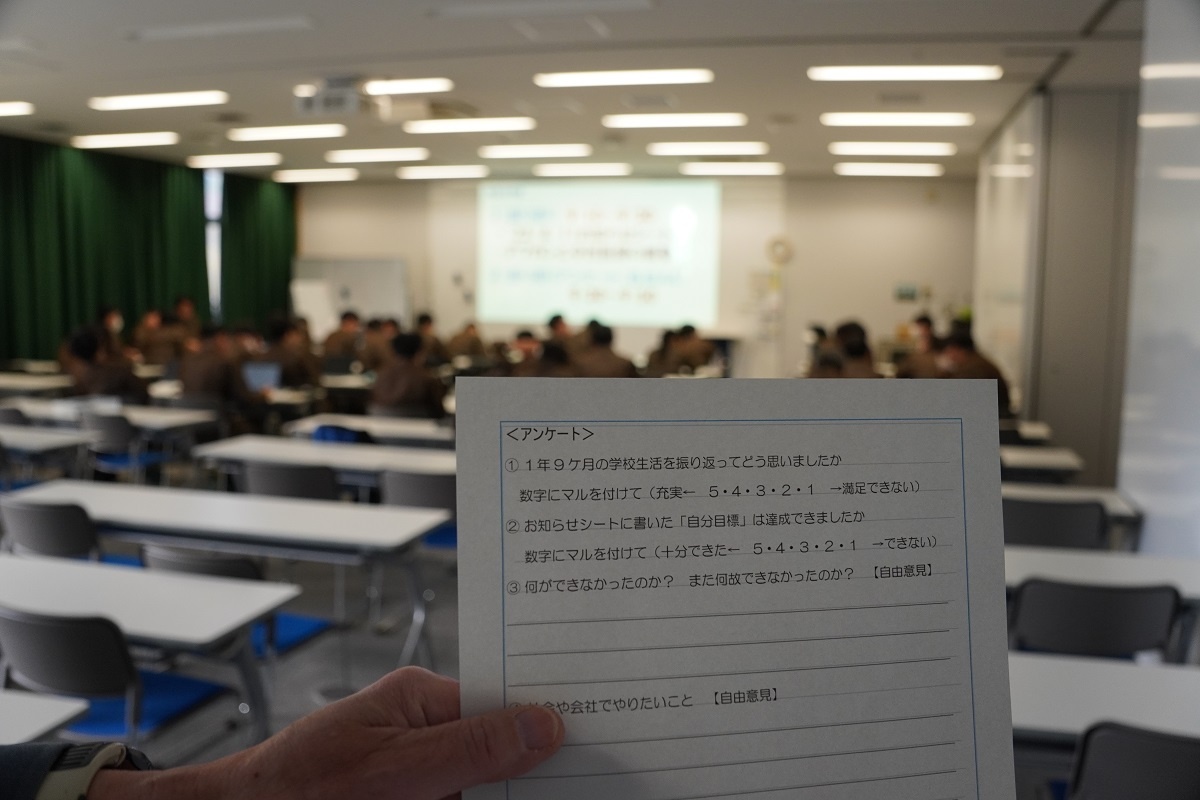 <アンケート>
① 1年9ケ月の学校生活を振り返ってどう思いましたか
数字にマルを付けて(充実← 5・4・3・2・1 →満足できない)
② お知らせシートに書いた「自分目標」は達成できましたか
数字にマルを付けて(十分できた← 5・4・3・2・1 →できない)
③ 何ができなかったのか? また何故できなかったのか? 【自由意見】
会や会社でやりたいこと 【自由意見】